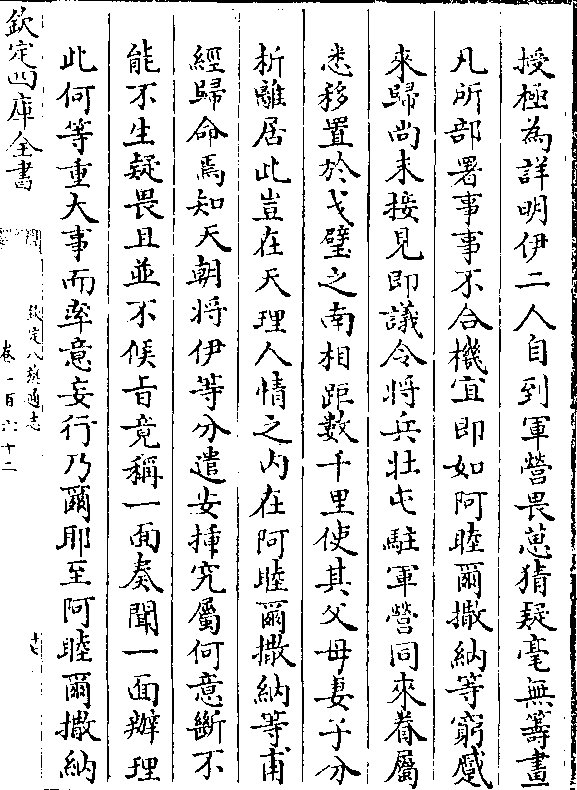 授極為詳明伊二人自到軍營畏葸猜疑毫無籌畫
凡所部署事事不合機宜即如阿睦爾撒納等窮蹙
來歸尚未接見即議令將兵壯屯駐軍營同來眷屬
悉移置於戈壁之南相距數千里使其父母妻子分
析離居此豈在天理人情之内在阿睦爾撒納等甫
經歸命焉知天朝將伊等分遣安揷究屬何意斷不
能不生疑畏且並不候㫖竟稱一面奏聞一面辦理
此何等重大事而率意妄行乃爾耶至阿睦爾撒納
欽定四庫全書
欽定八旗通志
卷一百六十二